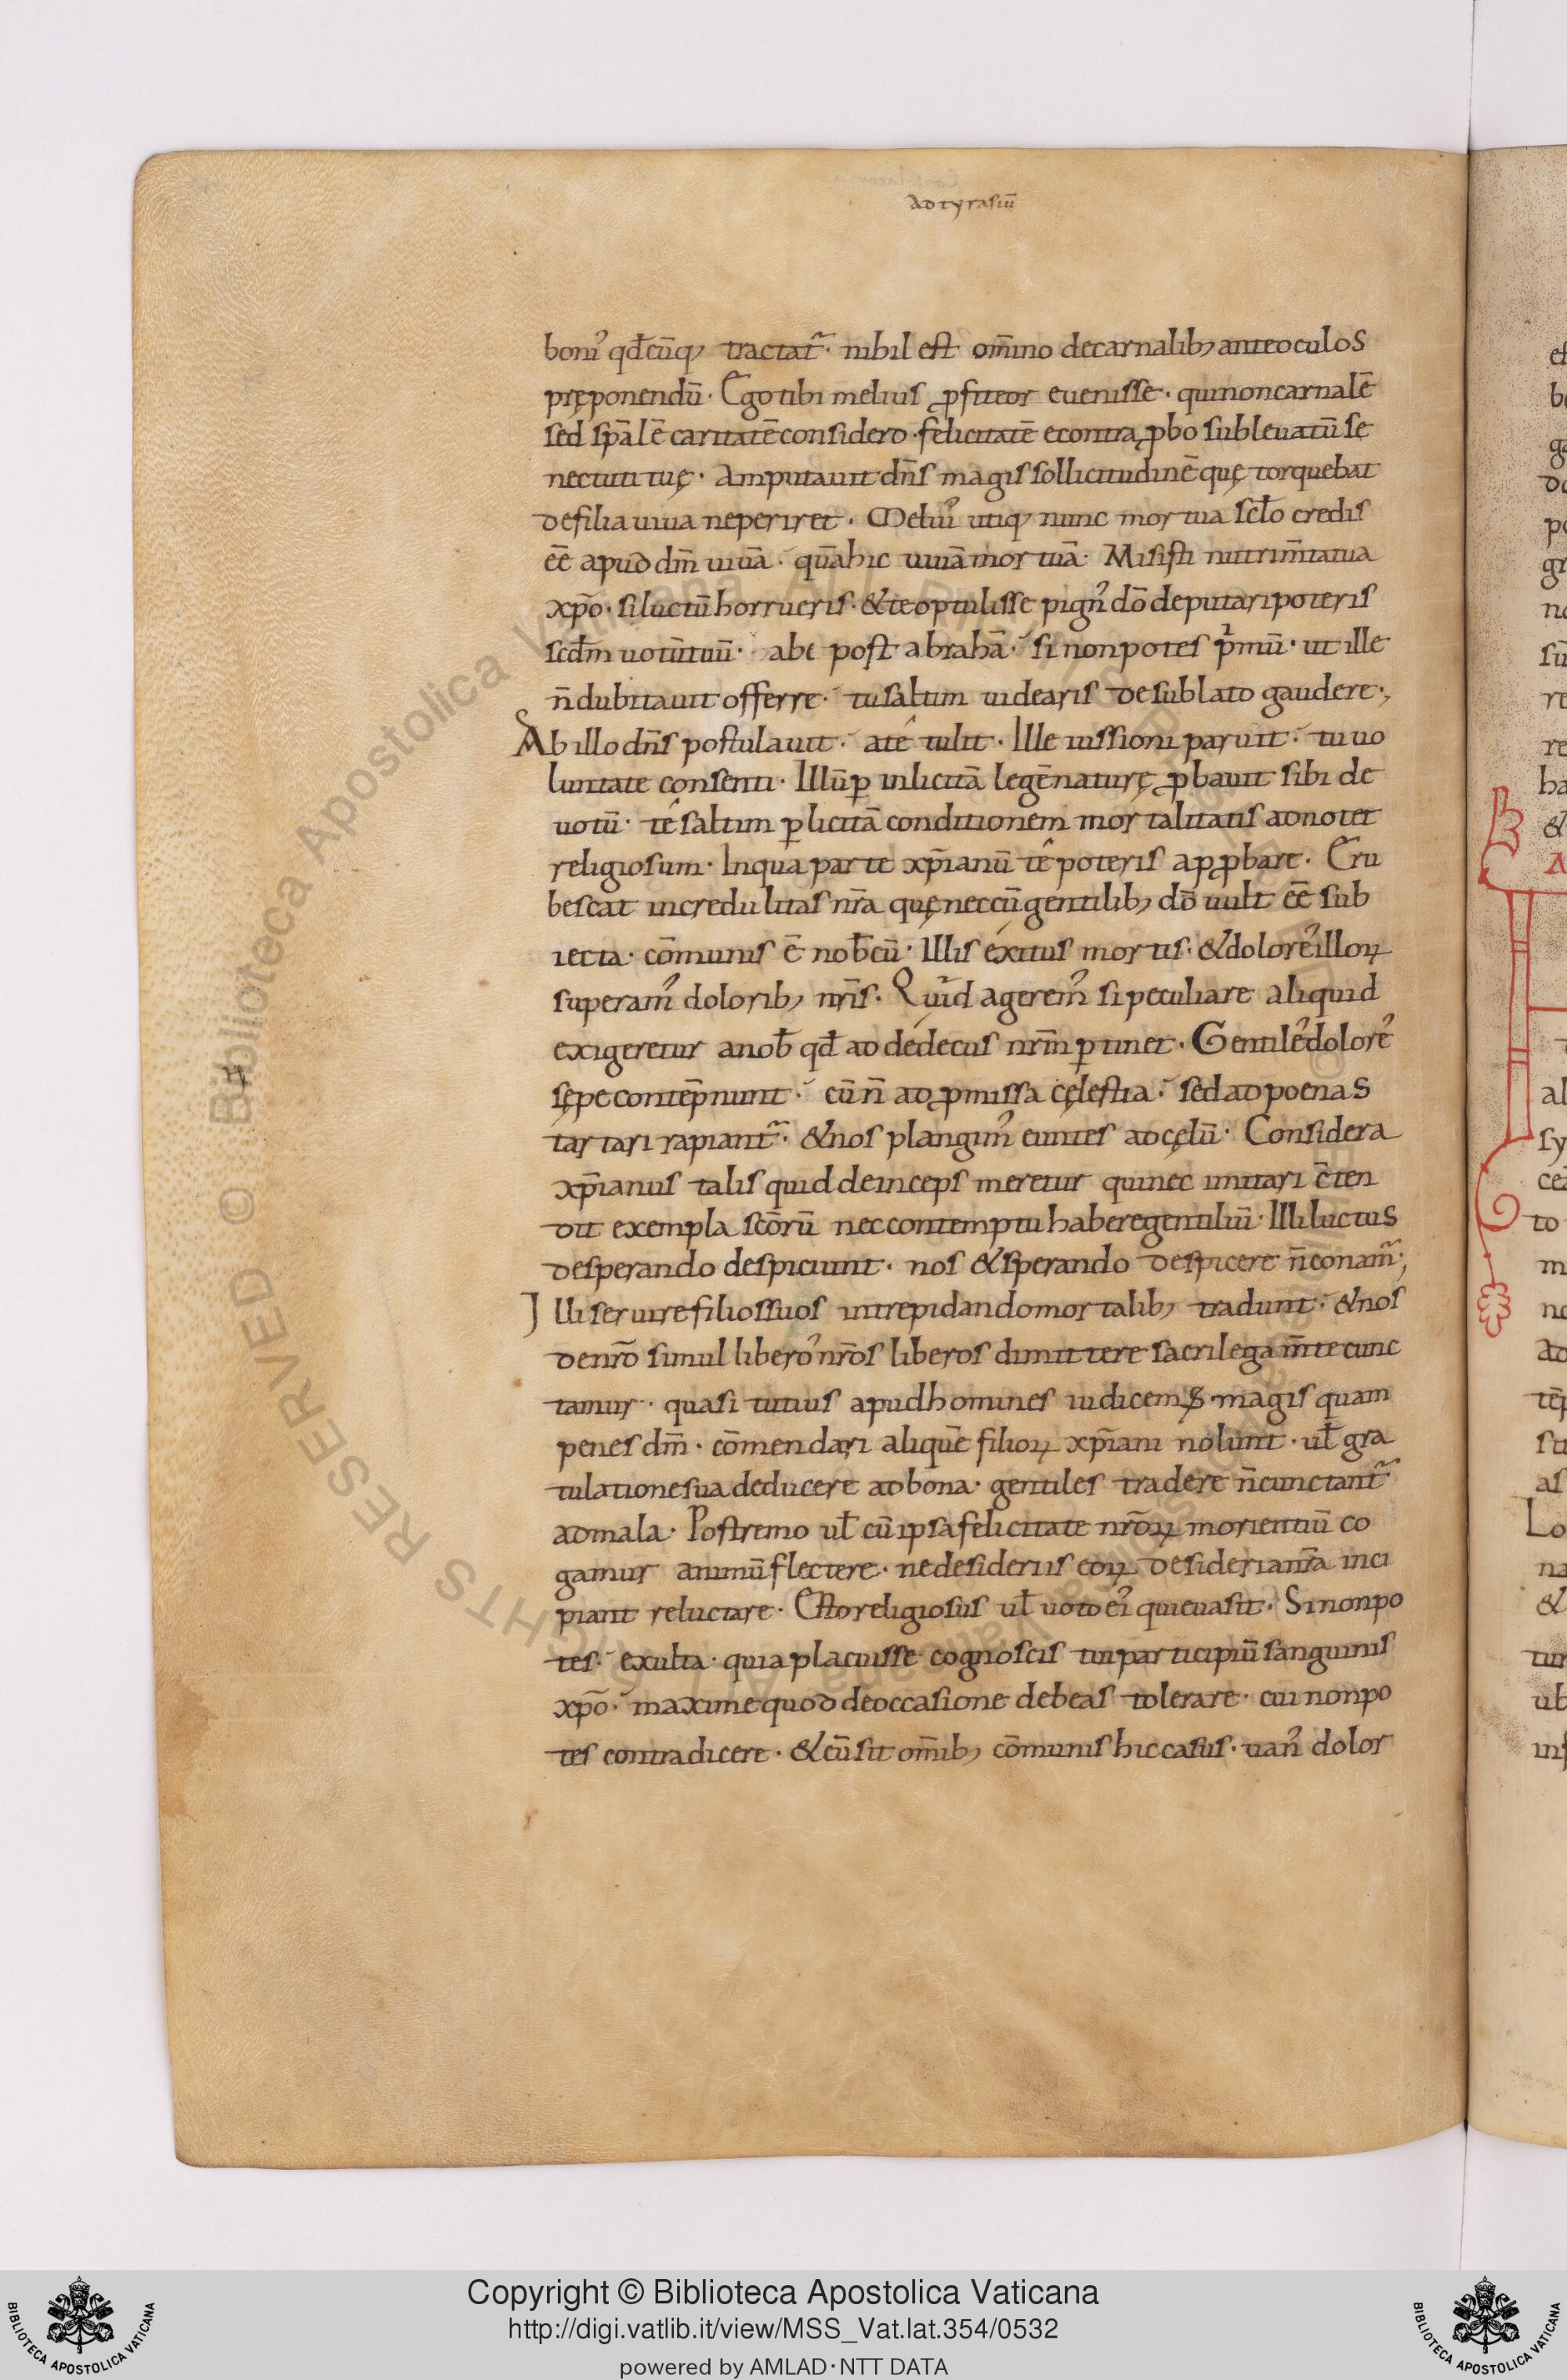 Adtyrasiū
boni᾿ qđcūq; tractat᷑· nihil est om̄ino decarnalib; anteoculos
pręponendū· Ego tibi melius ꝓfiteor euenisse· quinoncarnalē
sed sp̄alē caritatē considero· felicitatē econtra ꝓbo subleuatū sę
nectuti tuę· Amputauit dn̄s magis sollicitudinē quę torquebat
defilia uiua neperiret· Meliu᾿ utiq; nunc mortua scło credis
ēē apud dm̄ uiuā· quā hic uiuā mortuā· Misisti nutrim̄ta tua
xp̄o· si luctū horrueris· & te optulisse pign᾿ dō deputari poteris
scđm uotūtuū· abi post abrahā· si non potes p̄mū· ut ille
n̄ dubitauit offerre· tu saltim uidearis de sublato gaudere·,
Ab illo dn̄s postulauit· a tê tulit· Ille iussioni paruit· tu uo
luntate consenti· Illū ꝑ inlicitā legē naturę ꝓbauit sibi de
uotū· tê saltim ꝑ licitā conditionem mortalitatis adnotet
religiosum· Inqua parte xp̄ianū tê poteris apꝓbare· Eru
bescat incredulitas nr̄a quę nec cū gentilib; dō uult ēē sub
iecta· cōmunis ē nob̄cū· Illis éxitus mortis· & dolore᾿ illoꝝ
superam᾿ dolorib; nr̄is· Quid agerem᾿ si peculiare aliquid
exigeretur anob̄ qđ ad dédecus nr̄m ꝑtinet· Gentile᾿ dolore᾿
sępe contēpnunt· cū n̄ ad ꝓmissa cęlestia· sed ad poenas
tartari rapiant᷑· & nos plangim᾿ euntes ad cęlū· Considera
xp̄ianus talis quid deinceps meretur qui nec imitari c̄ten
dit exempla scōrū nec contemptu habere gentiliū· Illi luctus
desperando despiciunt· nos & sperando despicere n̄ conam᷑;
Illi seruire filios suos intrepidando mortalib; tradunt· & nos
de nr̄o simul libero᾿ nr̄os liberos dimittere sacrilegam̄te cunc
tamur· quasi tutius apud homines iudicem᾿ magis quam
penes dm̄· cōmendari aliquē filioꝝ xp̄iani nolunt· uł gra
tulatione sua deducere ad bona· gentiles tradere n̄ cunctant᷑
ad mala· Postremo uł cū ipsa felicitate nr̄oꝝ morientiū co
gamur animū flectere· ne desideriis eoꝝ desideria nr̄a inci
piant reluctare· Esto religiosus uł uoto ei᾿ qui euasit· Si non po
tes· exulta· quia placuisse cognoscis tui participiū sanguinis
xp̄o· maxime quod deoccasione debeas tolerare· cui non po
tes contradicere· & cū sit om̄ib; cōmunis hic casus· uan᾿ dolor
Copyright © Biblioteca Apostolica Vaticana
http://digi.vatlib.it/view/MSS_Vat.lat.354/0532
powered by AMLAD·NTT DATA